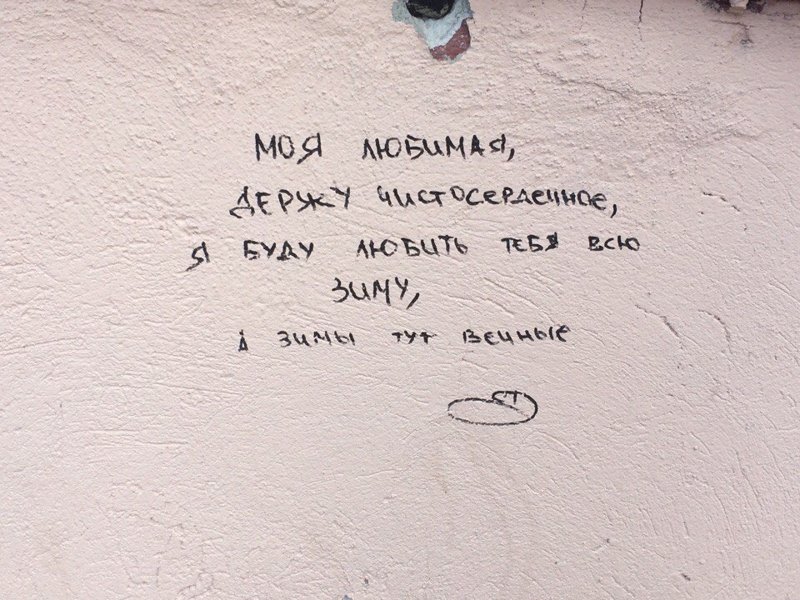 МОЯ ЛЮБИМАЯ,
ДЕРЖУ ЧИСТОСЕРДЕЧНОЕ,
Я БУДУ ЛЮБИТЬ ТЕБЯ ВСЮ
ЗИМУ,
А ЗИМЫ ТУТ ВЕЧНЫЕ
СТ